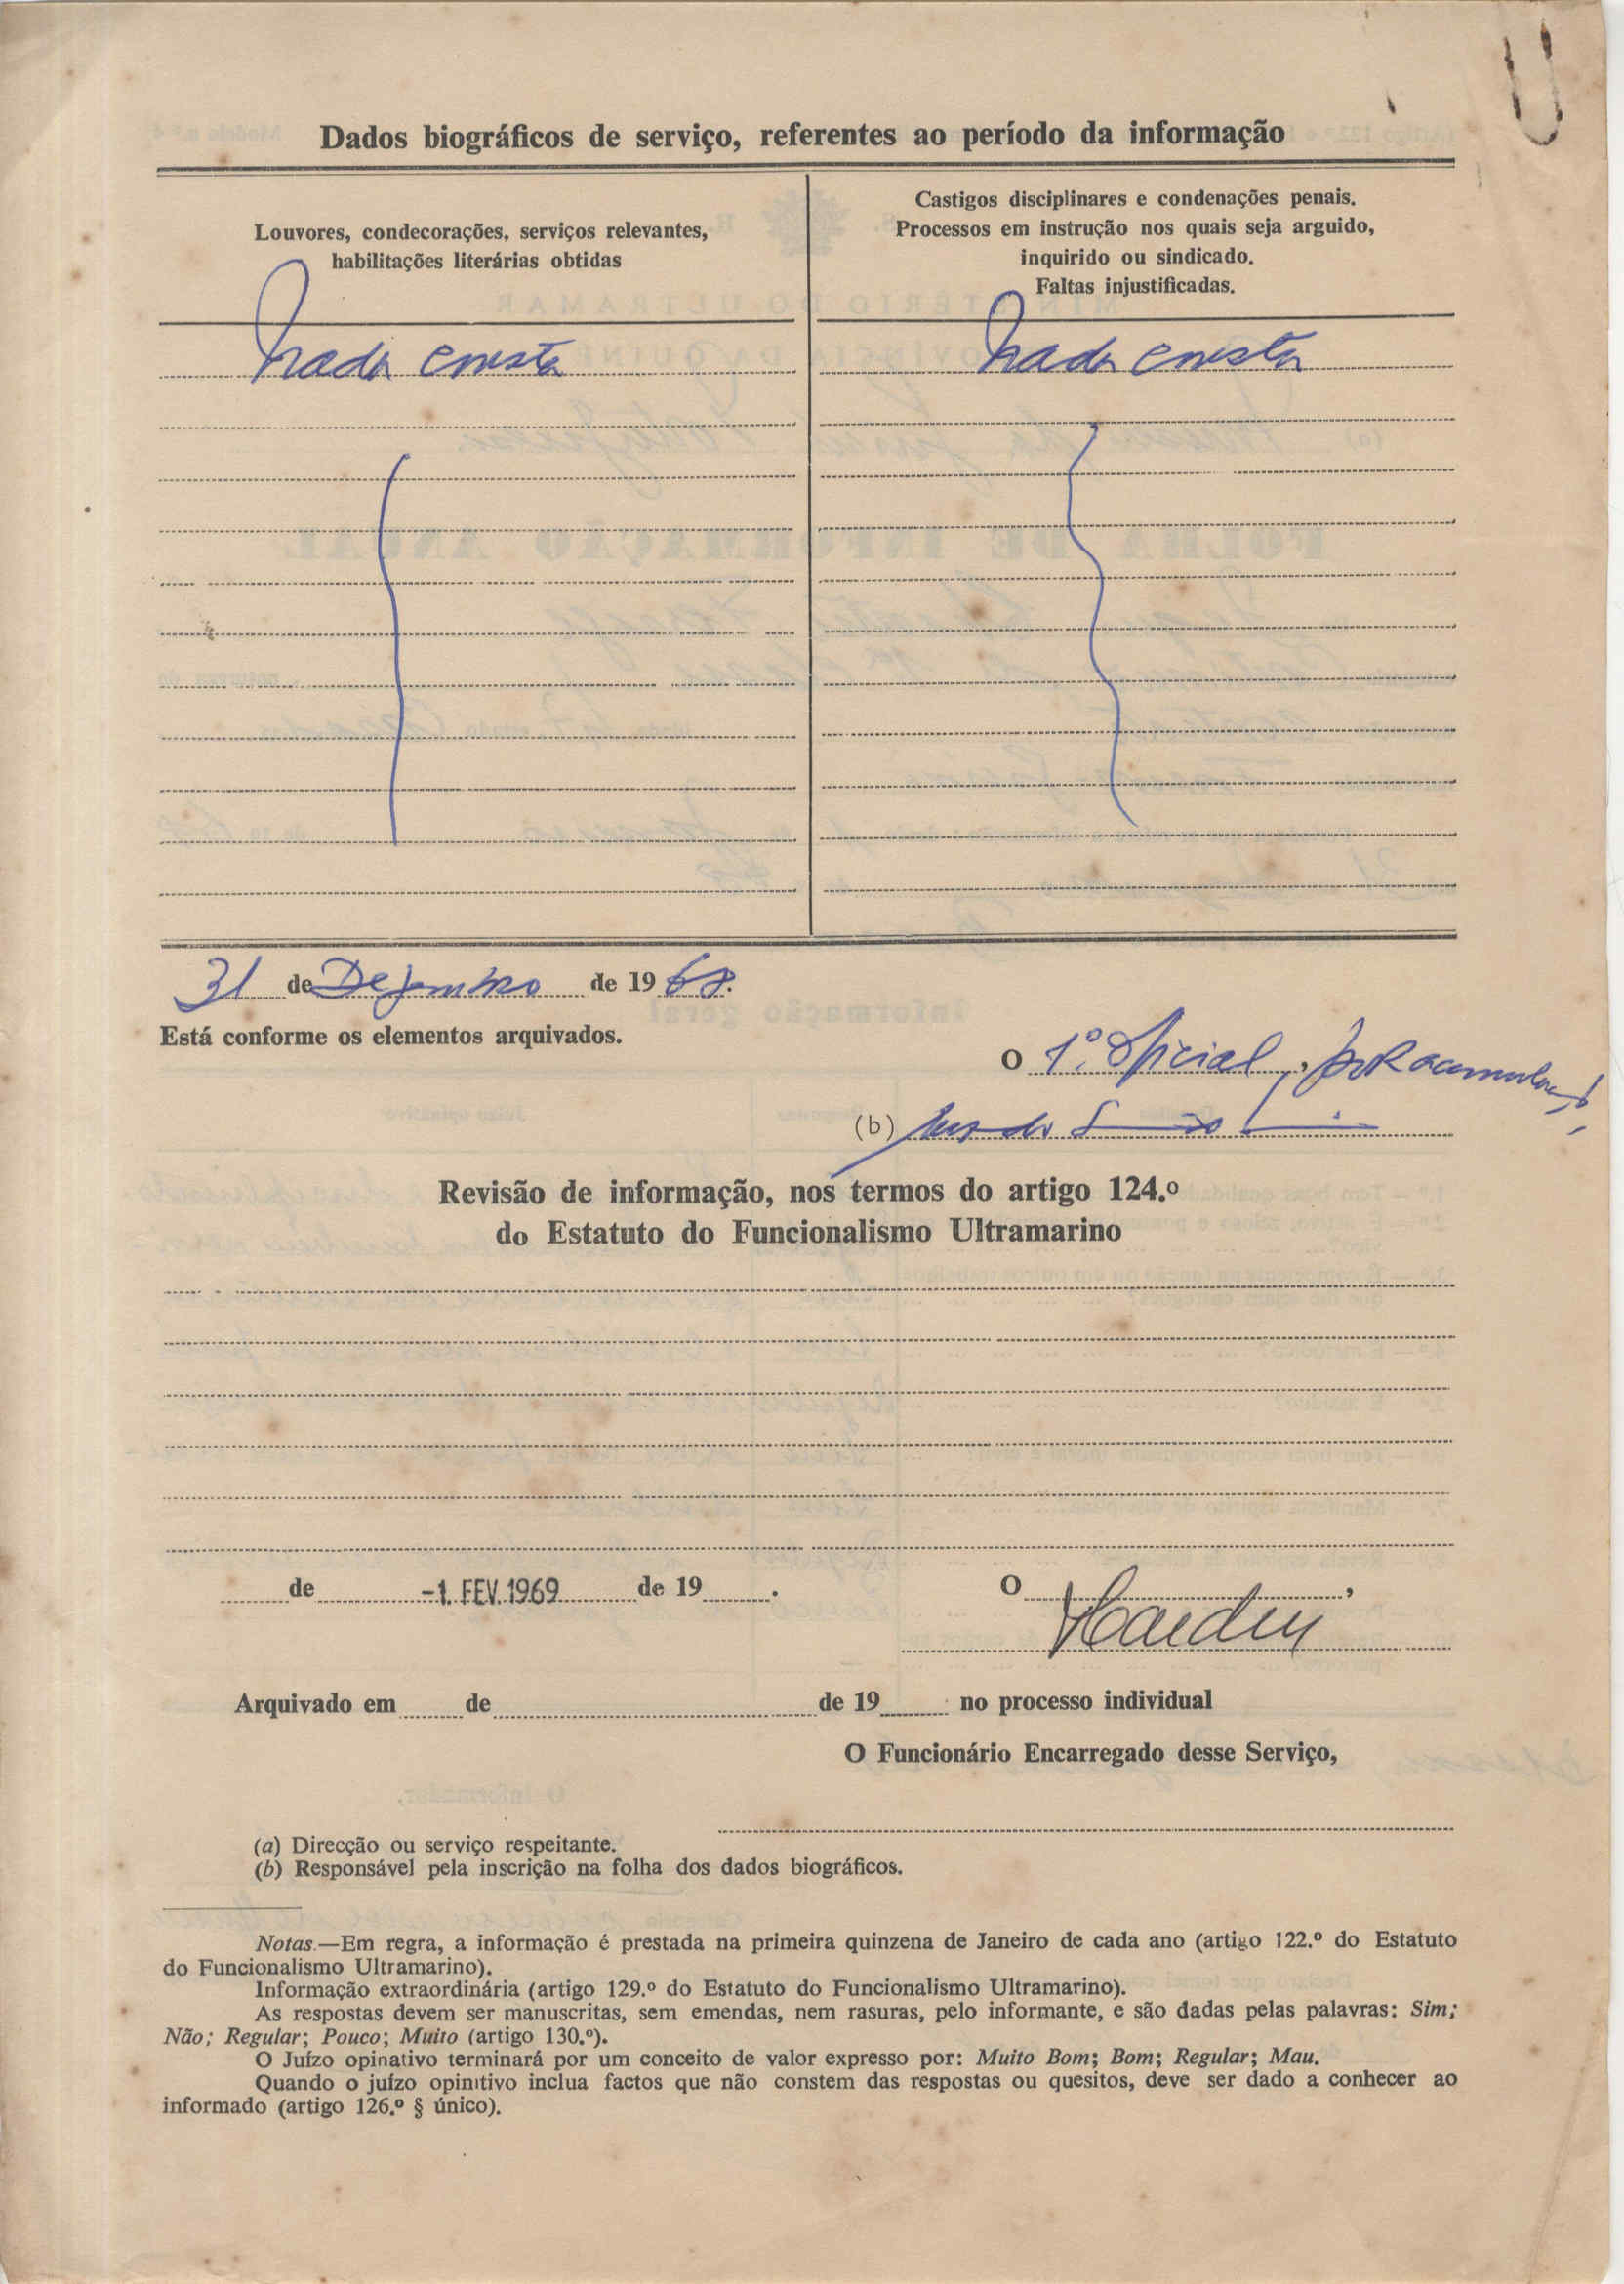 Dados biográficos de serviço, referentes ao período da informação
Louvores, condecorações, serviços relevantes,
habilitações literárias obtidas
Nada consta
Castigos disciplinares e condenações penais.
Processos em instrução nos quais seja arguido,
inquirido ou sindicado.
Faltas injustificadas.
Nada consta
31 de Dezembro de 1968.
Está conforme os elementos arquivados.
O 1.º Oficial, por
(b)
Revisão de informação, nos termos do artigo 124.º
do Estatuto do Funcionalismo Ultramarino
de -1. FEV. 1969 de 19 .
O ,
Arquivado em de de 19 no processo individual
O Funcionário Encarregado desse Serviço,
(a) Direcção ou serviço respeitante.
(b) Responsável pela inscrição na folha dos dados biográficos.
Notas.—Em regra, a informação é prestada na primeira quinzena de Janeiro de cada ano (artigo 122.º do Estatuto
do Funcionalismo Ultramarino).
Informação extraordinária (artigo 129.º do Estatuto do Funcionalismo Ultramarino).
As respostas devem ser manuscritas, sem emendas, nem rasuras, pelo informante, e são dadas pelas palavras: Sim;
Não; Regular; Pouco; Muito (artigo 130.º).
O Juízo opinativo terminará por um conceito de valor expresso por: Muito Bom; Bom; Regular; Mau.
Quando o juízo opinitivo inclua factos que não constem das respostas ou quesitos, deve ser dado a conhecer ao
informado (artigo 126.º § único).